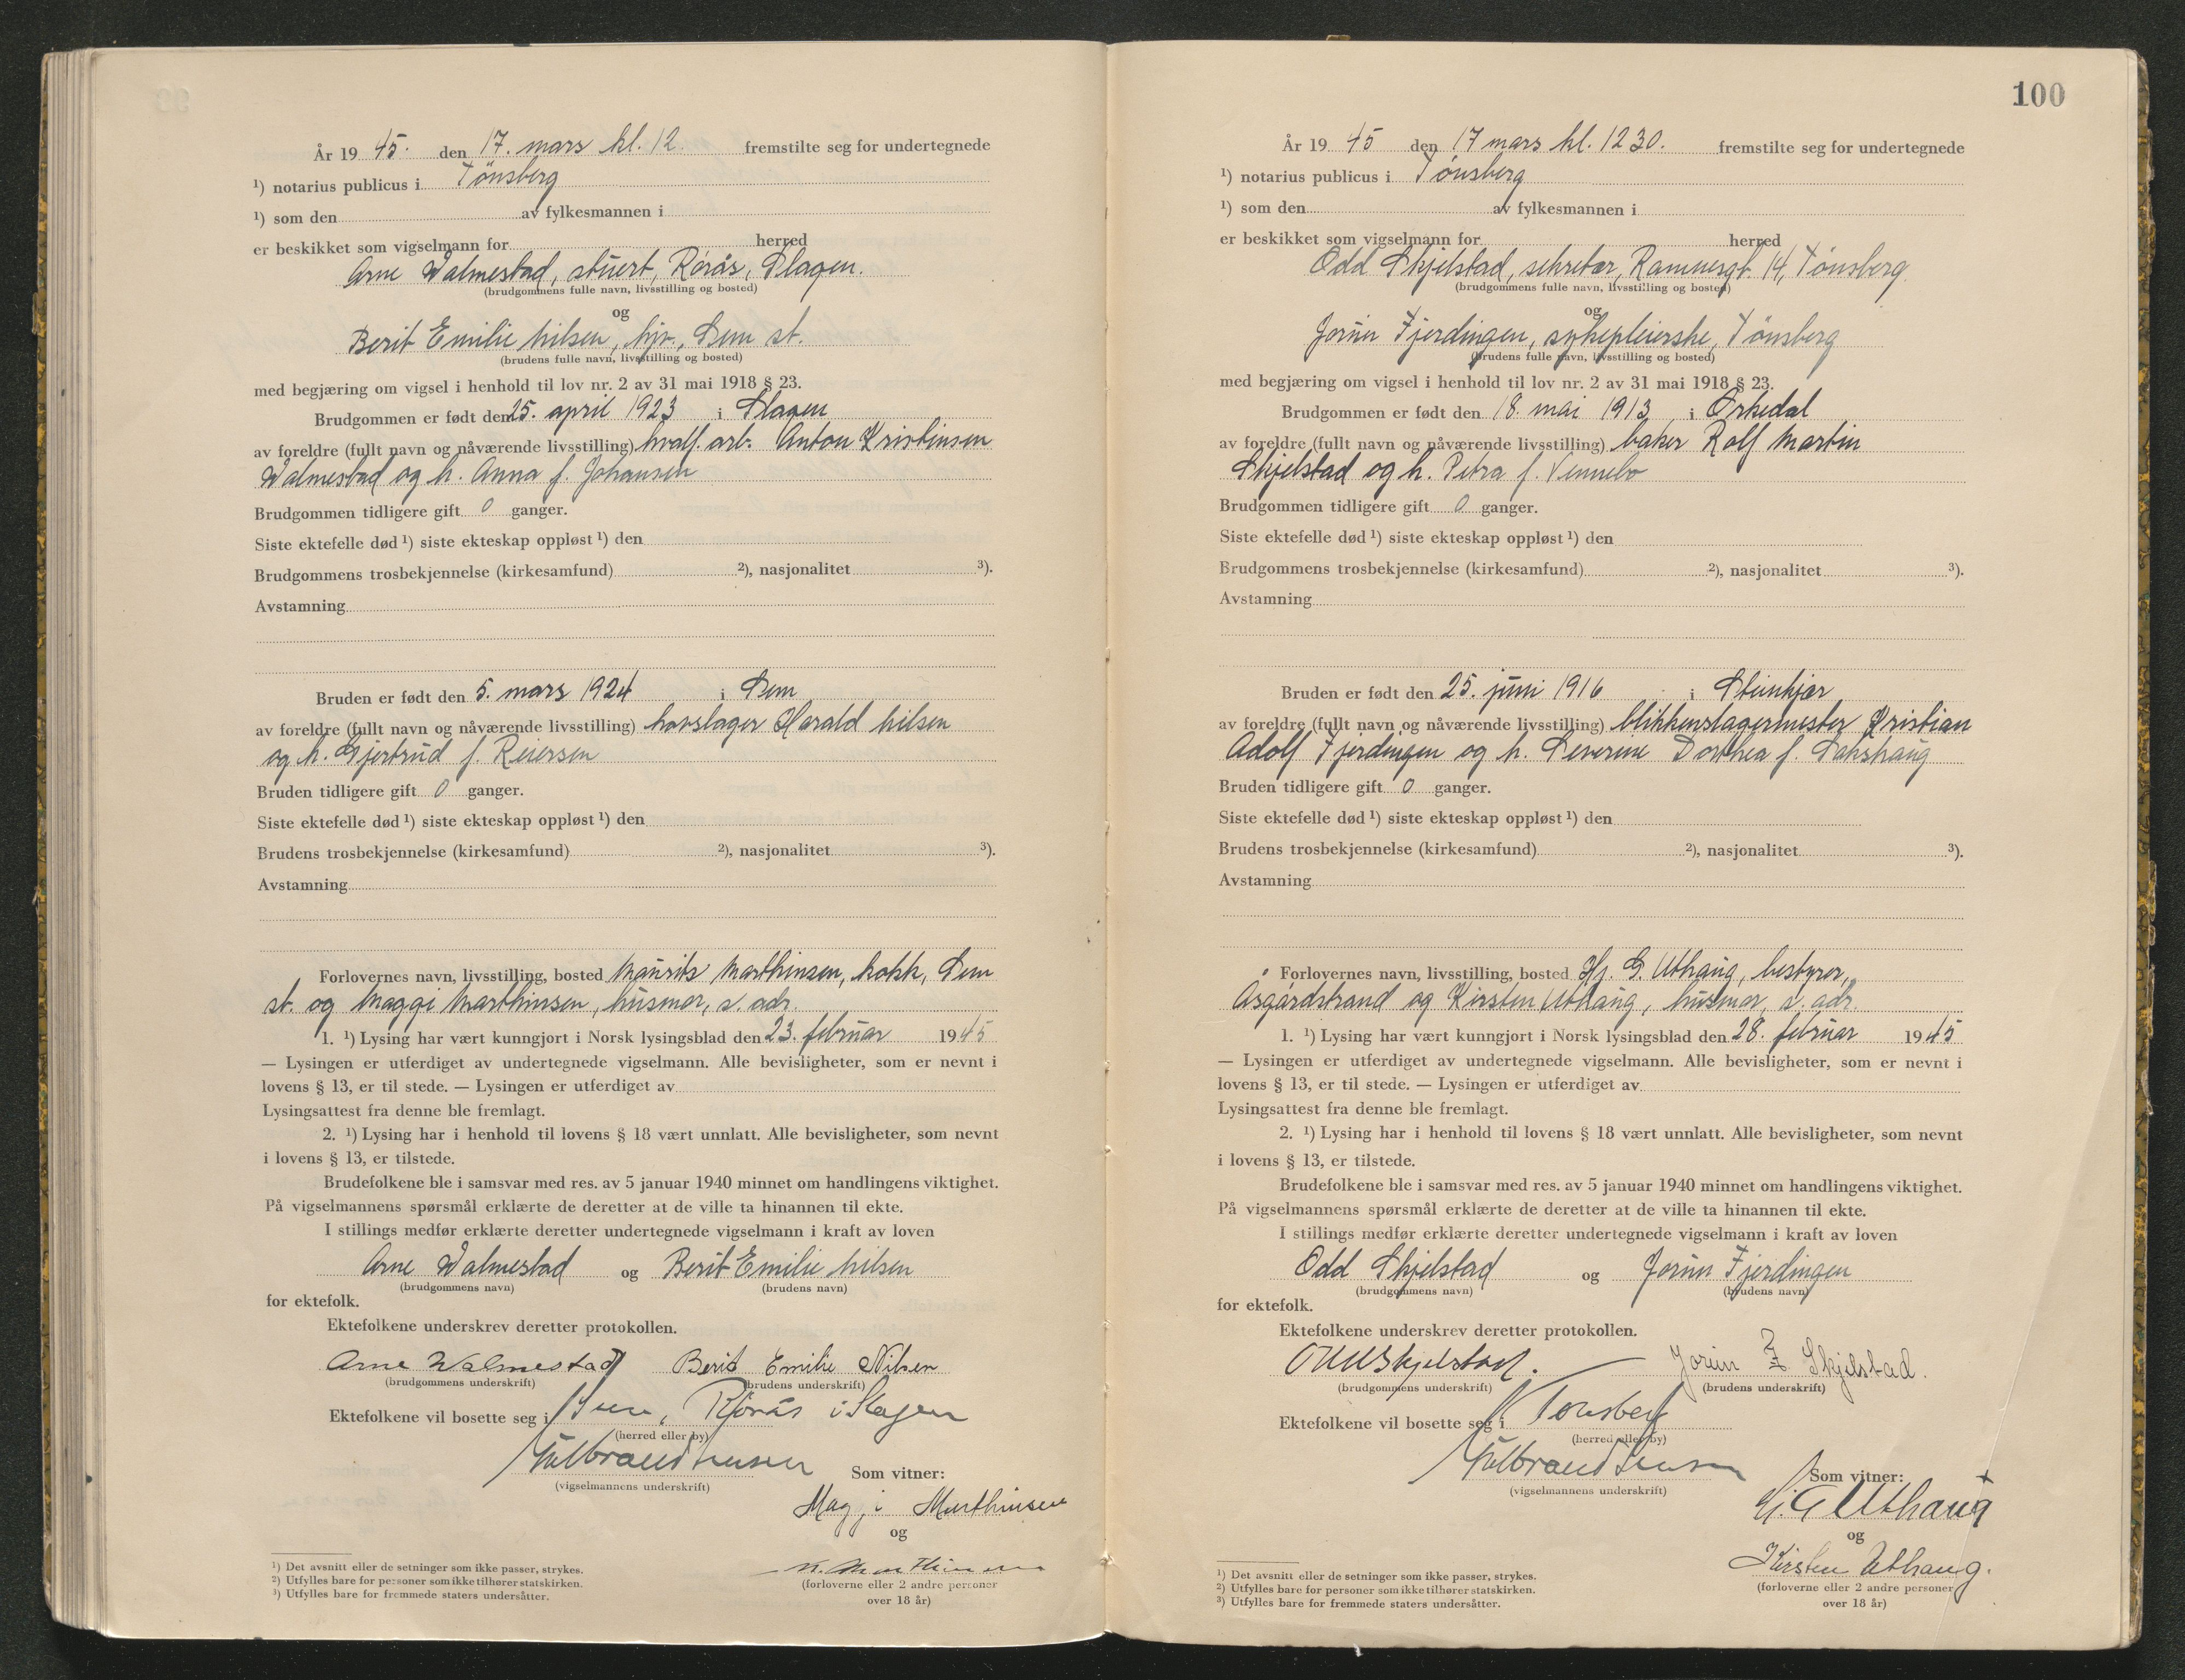 År 19 45. den 17. mars kl. 12. fremstilte seg for undertegnede
¹) notarius publicus i Tönsberg
¹) som den av fylkesmannen i
er beskikket som vigselmann for herred
Arne Walmestad, stuert, Rørås, Slagen.
(brudgommens fulle navn, livsstilling og bosted)
og
Berit Emilie Nilsen, hjv., Sem st.
(brudens fulle navn, livsstilling og bosted)
med begjæring om vigsel i henhold til lov nr. 2 av 31 mai 1918 § 23.
Brudgommen er født den 25. april 1923 i Slagen
av foreldre (fullt navn og nåværende livsstilling) hvalf. arb. Anton Kristinsen
Walmestad og h. Anna f. Johansen
Brudgommen tidligere gift 0 ganger.
Siste ektefelle død ¹) siste ekteskap oppløst ¹) den
Brudgommens trosbekjennelse (kirkesamfund) ²), nasjonalitet ³).
Avstamning
Bruden er født den 5. mars 1924 i Sem
av foreldre (fullt navn og nåværende livsstilling) hovslager Harald Nilsen
og h. Gjertrud f. Reiersen
Bruden tidligere gift 0 ganger.
Siste ektefelle død ¹) siste ekteskap oppløst ¹) den
Brudens trosbekjennelse (kirkesamfund) ²), nasjonalitet ³).
Avstamning
Forlovernes navn, livsstilling, bosted Maurits Marthinsen, kokk, Sem
st. og Maggi Marthinsen, husmor, s. adr.
1. ¹) Lysing har vært kunngjort i Norsk lysingsblad den 23. februar 1945
— Lysingen er utferdiget av undertegnede vigselmann. Alle bevisligheter, som er nevnt i
lovens § 13, er til stede. — Lysingen er utferdiget av
Lysingsattest fra denne ble fremlagt.
2. ¹) Lysing har i henhold til lovens § 18 vært unnlatt. Alle bevisligheter, som nevnt
i lovens § 13, er tilstede.
Brudefolkene ble i samsvar med res. av 5 januar 1940 minnet om handlingens viktighet.
På vigselmannens spørsmål erklærte de deretter at de ville ta hinannen til ekte.
I stillings medfør erklærte deretter undertegnede vigselmann i kraft av loven
Arne Walmestad og Berit Emilie Nilsen
(brudgommens navn) (brudens navn)
for ektefolk.
Ektefolkene underskrev deretter protokollen.
Arne Walmestad Berit Emilie Nilsen
(brudgommens underskrift) (brudens underskrift)
Ektefolkene vil bosette seg i Sem, Rørås i Slagen
(herred eller by)
Gulbrand Jensen
(vigselmannens underskrift) Som vitner:
Maggi Marthinsen
og
M. Marthinsen
(forloverne eller 2 andre personer
over 18 år)
¹) Det avsnitt eller de setninger som ikke passer, strykes.
²) Utfylles bare for personer som ikke tilhører statskirken.
³) Utfylles bare for fremmede staters undersåtter.
100
År 19 45 den 17 mars kl. 12 30. fremstilte seg for undertegnede
¹) notarius publicus i Tönsberg
¹) som den av fylkesmannen i
er beskikket som vigselmann for herred
Odd Skjelstad, sekretær, Ramnesgt. 14, Tönsberg
(brudgommens fulle navn, livsstilling og bosted)
og
Jorun Fjerdingen, sykepleierske, Tönsberg
(brudens fulle navn, livsstilling og bosted)
med begjæring om vigsel i henhold til lov nr. 2 av 31 mai 1918 § 23.
Brudgommen er født den 18. mai 1913 i Orkedal
av foreldre (fullt navn og nåværende livsstilling) baker Rolf Martin
Skjelstad og h. Petra f. Vennebo
Brudgommen tidligere gift 0 ganger.
Siste ektefelle død ¹) siste ekteskap oppløst ¹) den
Brudgommens trosbekjennelse (kirkesamfund) ²), nasjonalitet ³).
Avstamning
Bruden er født den 25. juni 1916 i Steinkjær
av foreldre (fullt navn og nåværende livsstilling) blikkenslagermester Kristian
Adolf Fjerdingen og h. Severine Dorthea f. Sakshaug
Bruden tidligere gift 0 ganger.
Siste ektefelle død ¹) siste ekteskap oppløst ¹) den
Brudens trosbekjennelse (kirkesamfund) ²), nasjonalitet ³).
Avstamning
Forlovernes navn, livsstilling, bosted Hj. G. Uthaug, bestyrer,
Åsgårdstrand og Kirsten Uthaug, husmor, s. adr.
1. ¹) Lysing har vært kunngjort i Norsk lysingsblad den 28. februar 1945
— Lysingen er utferdiget av undertegnede vigselmann. Alle bevisligheter, som er nevnt i
lovens § 13, er til stede. — Lysingen er utferdiget av
Lysingsattest fra denne ble fremlagt.
2. ¹) Lysing har i henhold til lovens § 18 vært unnlatt. Alle bevisligheter, som nevnt
i lovens § 13, er tilstede.
Brudefolkene ble i samsvar med res. av 5 januar 1940 minnet om handlingens viktighet.
På vigselmannens spørsmål erklærte de deretter at de ville ta hinannen til ekte.
I stillings medfør erklærte deretter undertegnede vigselmann i kraft av loven
Odd Skjelstad og Jorun Fjerdingen
(brudgommens navn) (brudens navn)
for ektefolk.
Ektefolkene underskrev deretter protokollen.
Odd Skjelstad. — Jorun F. Skjelstad.
(brudgommens underskrift) (brudens underskrift)
Ektefolkene vil bosette seg i Tønsberg
(herred eller by)
Gulbrand Jensen
(vigselmannens underskrift) Som vitner:
Hj. G Uthaug
og
Kirsten Uthaug.
(forloverne eller 2 andre personer
over 18 år)
¹) Det avsnitt eller de setninger som ikke passer, strykes.
²) Utfylles bare for personer som ikke tilhører statskirken.
³) Utfylles bare for fremmede staters undersåtter.